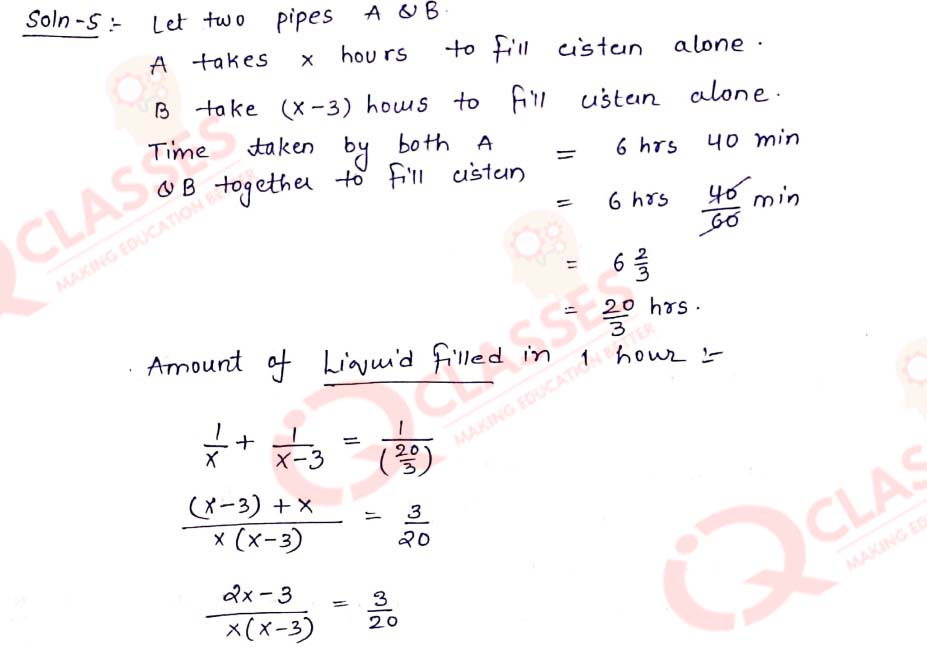 Soln-5 :- Let two pipes A & B.
A takes x hours to fill cistern alone.
B take (x-3) hours to fill cistern alone.
Time taken by both A & B together to fill cistern = 6 hrs 40 min
= 6 hrs 40/60 min
= 6 2/3
= 20/3 hrs.
Amount of Liquid filled in 1 hour :-
1/x + 1/(x-3) = 1/(20/3)
((x-3) + x)/(x(x-3)) = 3/20
(2x-3)/(x(x-3)) = 3/20
IQ CLASSES
MAKING EDUCATION BETTER